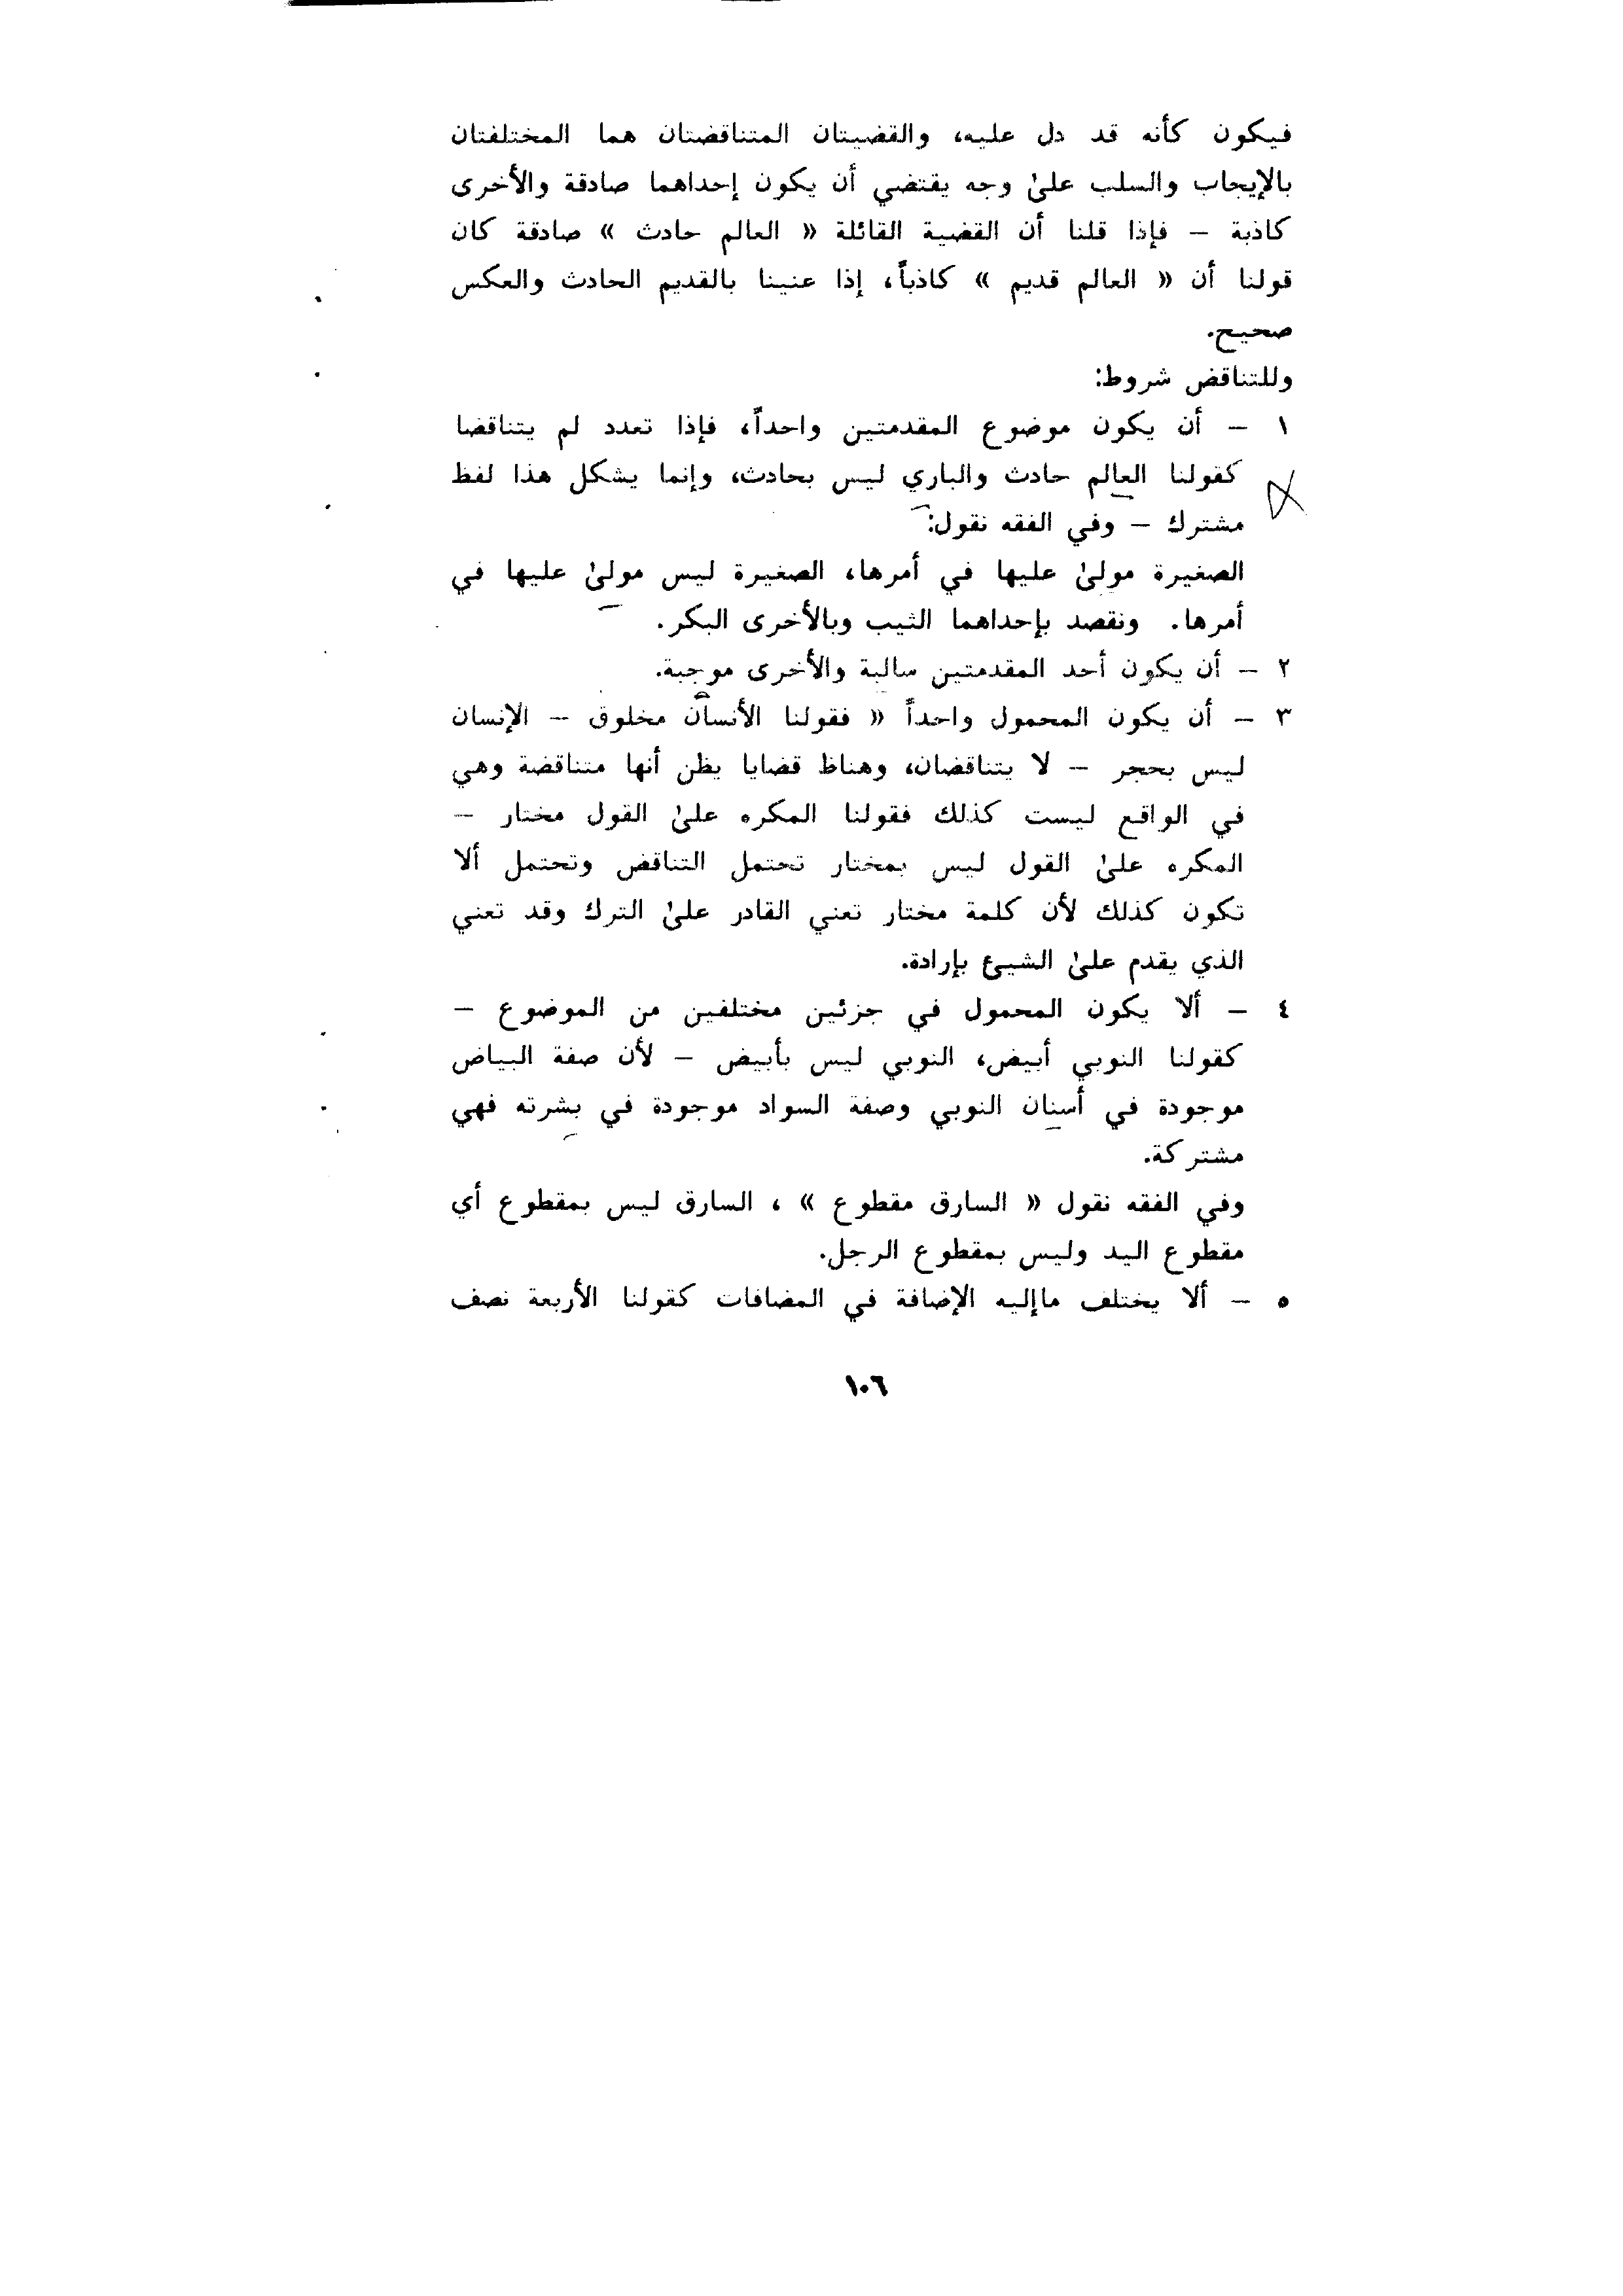 فيكون كأنه قد دل عليه، والقضيتان المتناقضتان هما المختلفتان
بالإيجاب والسلب علىٰ وجه يقتضي أن يكون إحداهما صادقة والأخرى
كاذبة – فإذا قلنا أن القضية القائلة « العالم حادث » صادقة كان
قولنا أن « العالم قديم » كاذباً، إذا عنينا بالقديم الحادث والعكس
صحيح.
وللتناقض شروط:
١ – أن يكون موضوع المقدمتين واحداً، فإذا تعدد لم يتناقضا
كقولنا العالم حادث والباري ليس بحادث، وإنما يشكل هذا لفظ
مشترك – وفي الفقه نقول:
الصغيرة مولىٰ عليها في أمرها، الصغيرة ليس مولىٰ عليها في
أمرها. ونقصد بإحداهما الثيب وبالأخرى البكر.
٢ – أن يكون أحد المقدمتين سالبة والأخرى موجبة.
٣ – أن يكون المحمول واحداً « فقولنا الأنسان مخلوق – الإنسان
ليس بحجر – لا يتناقضان، وهناظ قضايا يظن أنها متناقضة وهي
في الواقع ليست كذلك فقولنا المكره علىٰ القول مختار –
المكره علىٰ القول ليس بمختار تحتمل التناقض وتحتمل ألا
تكون كذلك لأن كلمة مختار تعني القادر علىٰ الترك وقد تعني
الذي يقدم علىٰ الشيئ بإرادة.
٤ – ألا يكون المحمول في جزئين مختلفين من الموضوع –
كقولنا النوبي أبيض، النوبي ليس بأبيض – لأن صفة البياض
موجودة في أسنان النوبي وصفة السواد موجودة في بشرته فهي
مشتركة.
وفي الفقه نقول « السارق مقطوع » ، السارق ليس بمقطوع أي
مقطوع اليد وليس بمقطوع الرجل.
٥ – ألا يختلف ماإليه الإضافة في المضافات كقولنا الأربعة نصف
١٠٦